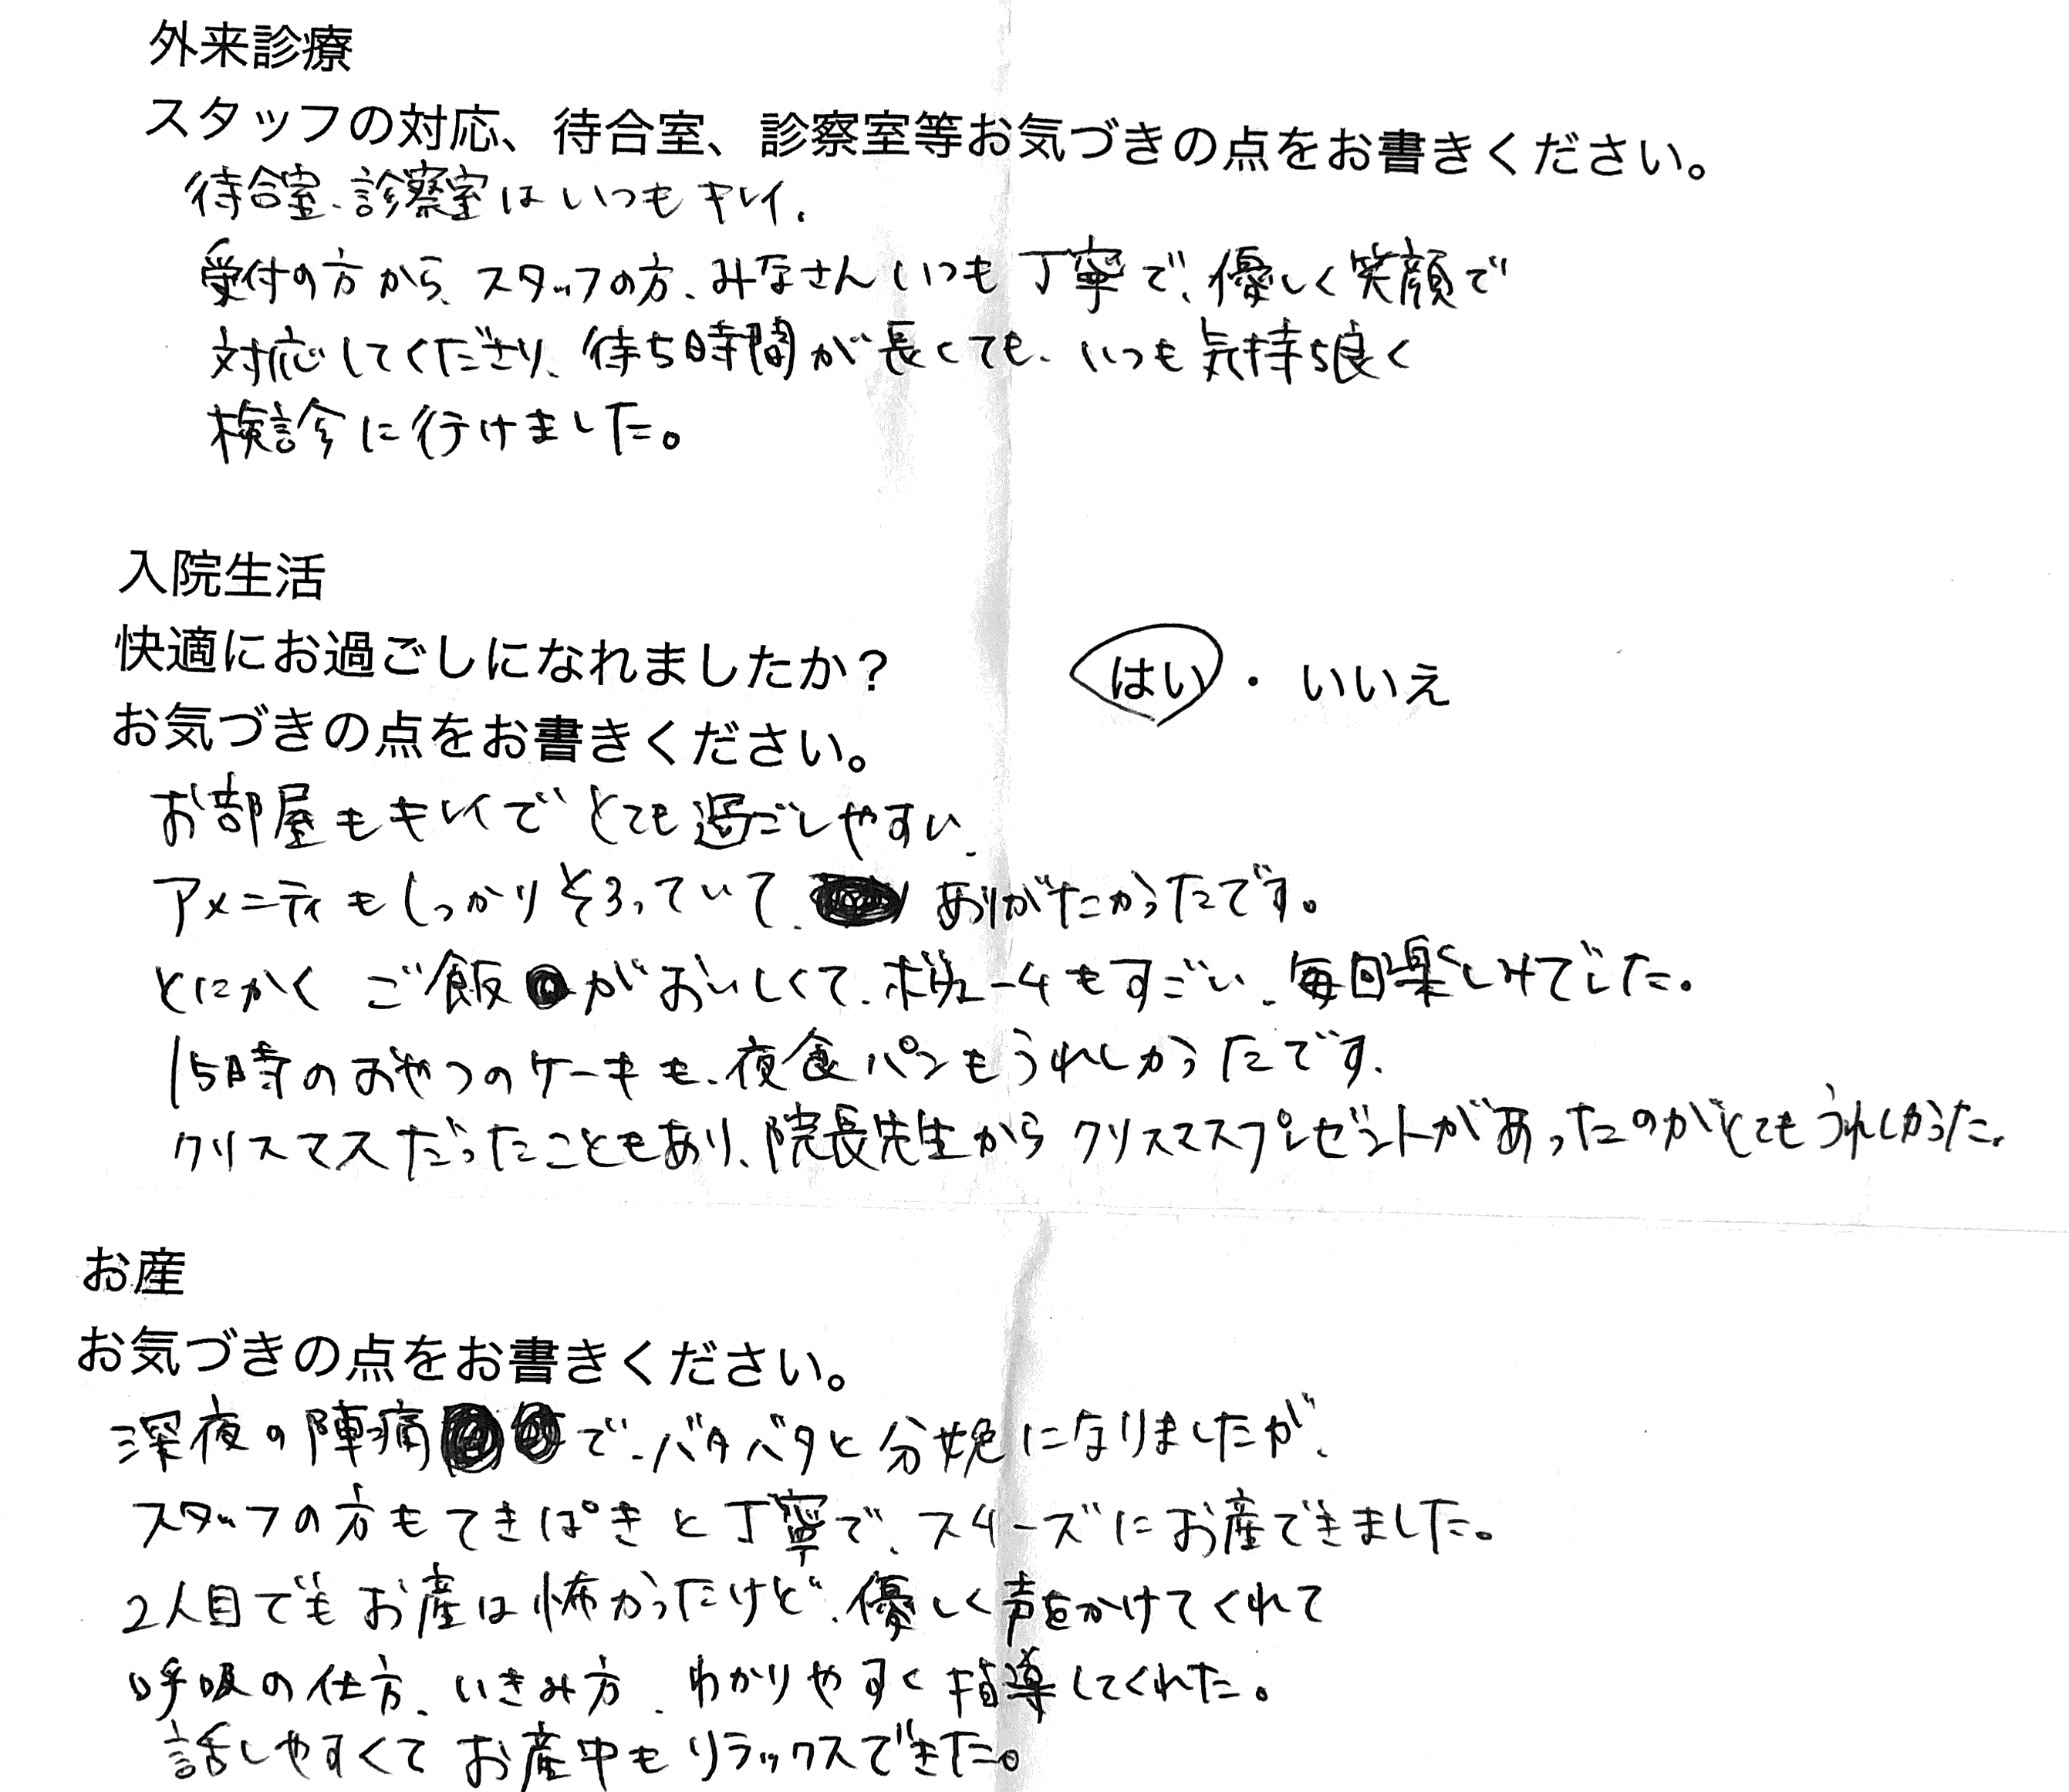 外来診療
スタッフの対応、待合室、診察室等お気づきの点をお書きください。
待合室、診察室はいつもキレイ、
受付の方から、スタッフの方、みなさんいつも丁寧で、優しく笑顔で
対応してくださり、待ち時間が長くても、いつも気持ち良く
検診に行けました。
入院生活
快適にお過ごしになれましたか？ はい ・ いいえ
お気づきの点をお書きください。
お部屋もキレイでとても過ごしやすい、
アメニティもしっかりそろっていて、ありがたかったです。
とにかくご飯がおいしくて、ボリュームもすごい、毎回楽しみでした。
15時のおやつのケーキも、夜食パンもうれしかったです、
クリスマスだったこともあり、院長先生からクリスマスプレゼントがあったのがとてもうれしかった、
お産
お気づきの点をお書きください。
深夜の陣痛で、バタバタと分娩になりましたが、
スタッフの方もてきぱきと丁寧で、スムーズにお産できました。
2人目でもお産は怖かったけど、優しく声をかけてくれて
呼吸の仕方、いきみ方、わかりやすく指導してくれた。
話しやすくてお産中もリラックスできた。